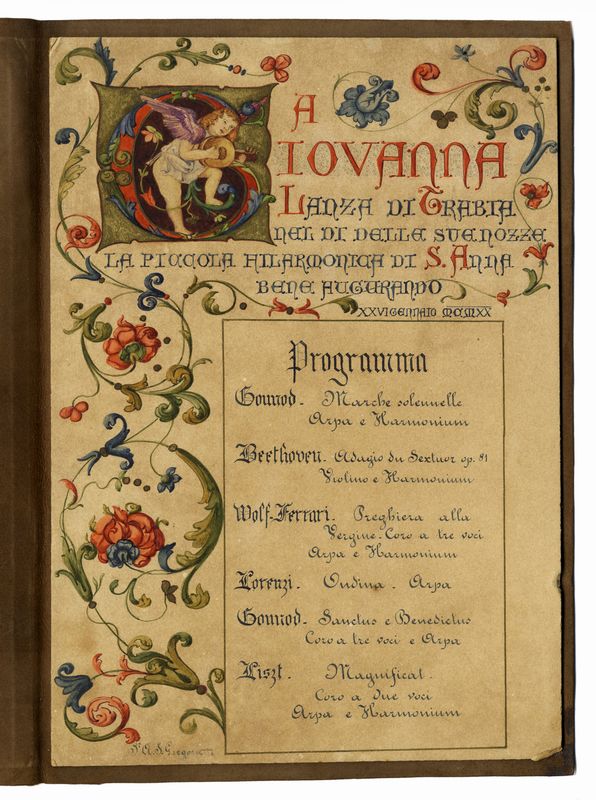 A
GIOVANNA
LANZA DI TRABIA
NEL DI DELLE SUE NOZZE
LA PICCOLA FILARMONICA DI S. ANNA
BENE AUGURANDO
XXVI GENNAIO MCMXX
Programma
Gounod - Marche solennelle
Arpa e Harmonium
Beethoven - Adagio du Sextuor op. 81
Violino e Harmonium
Wolf-Ferrari. Preghiera alla
Vergine - Coro a tre voci
Arpa e Harmonium
Lorenzi - Ondina - Arpa
Gounod - Sanctus e Benedictus
Coro a tre voci e Arpa
Liszt - Magnificat -
Coro a due voci
Arpa e Harmonium